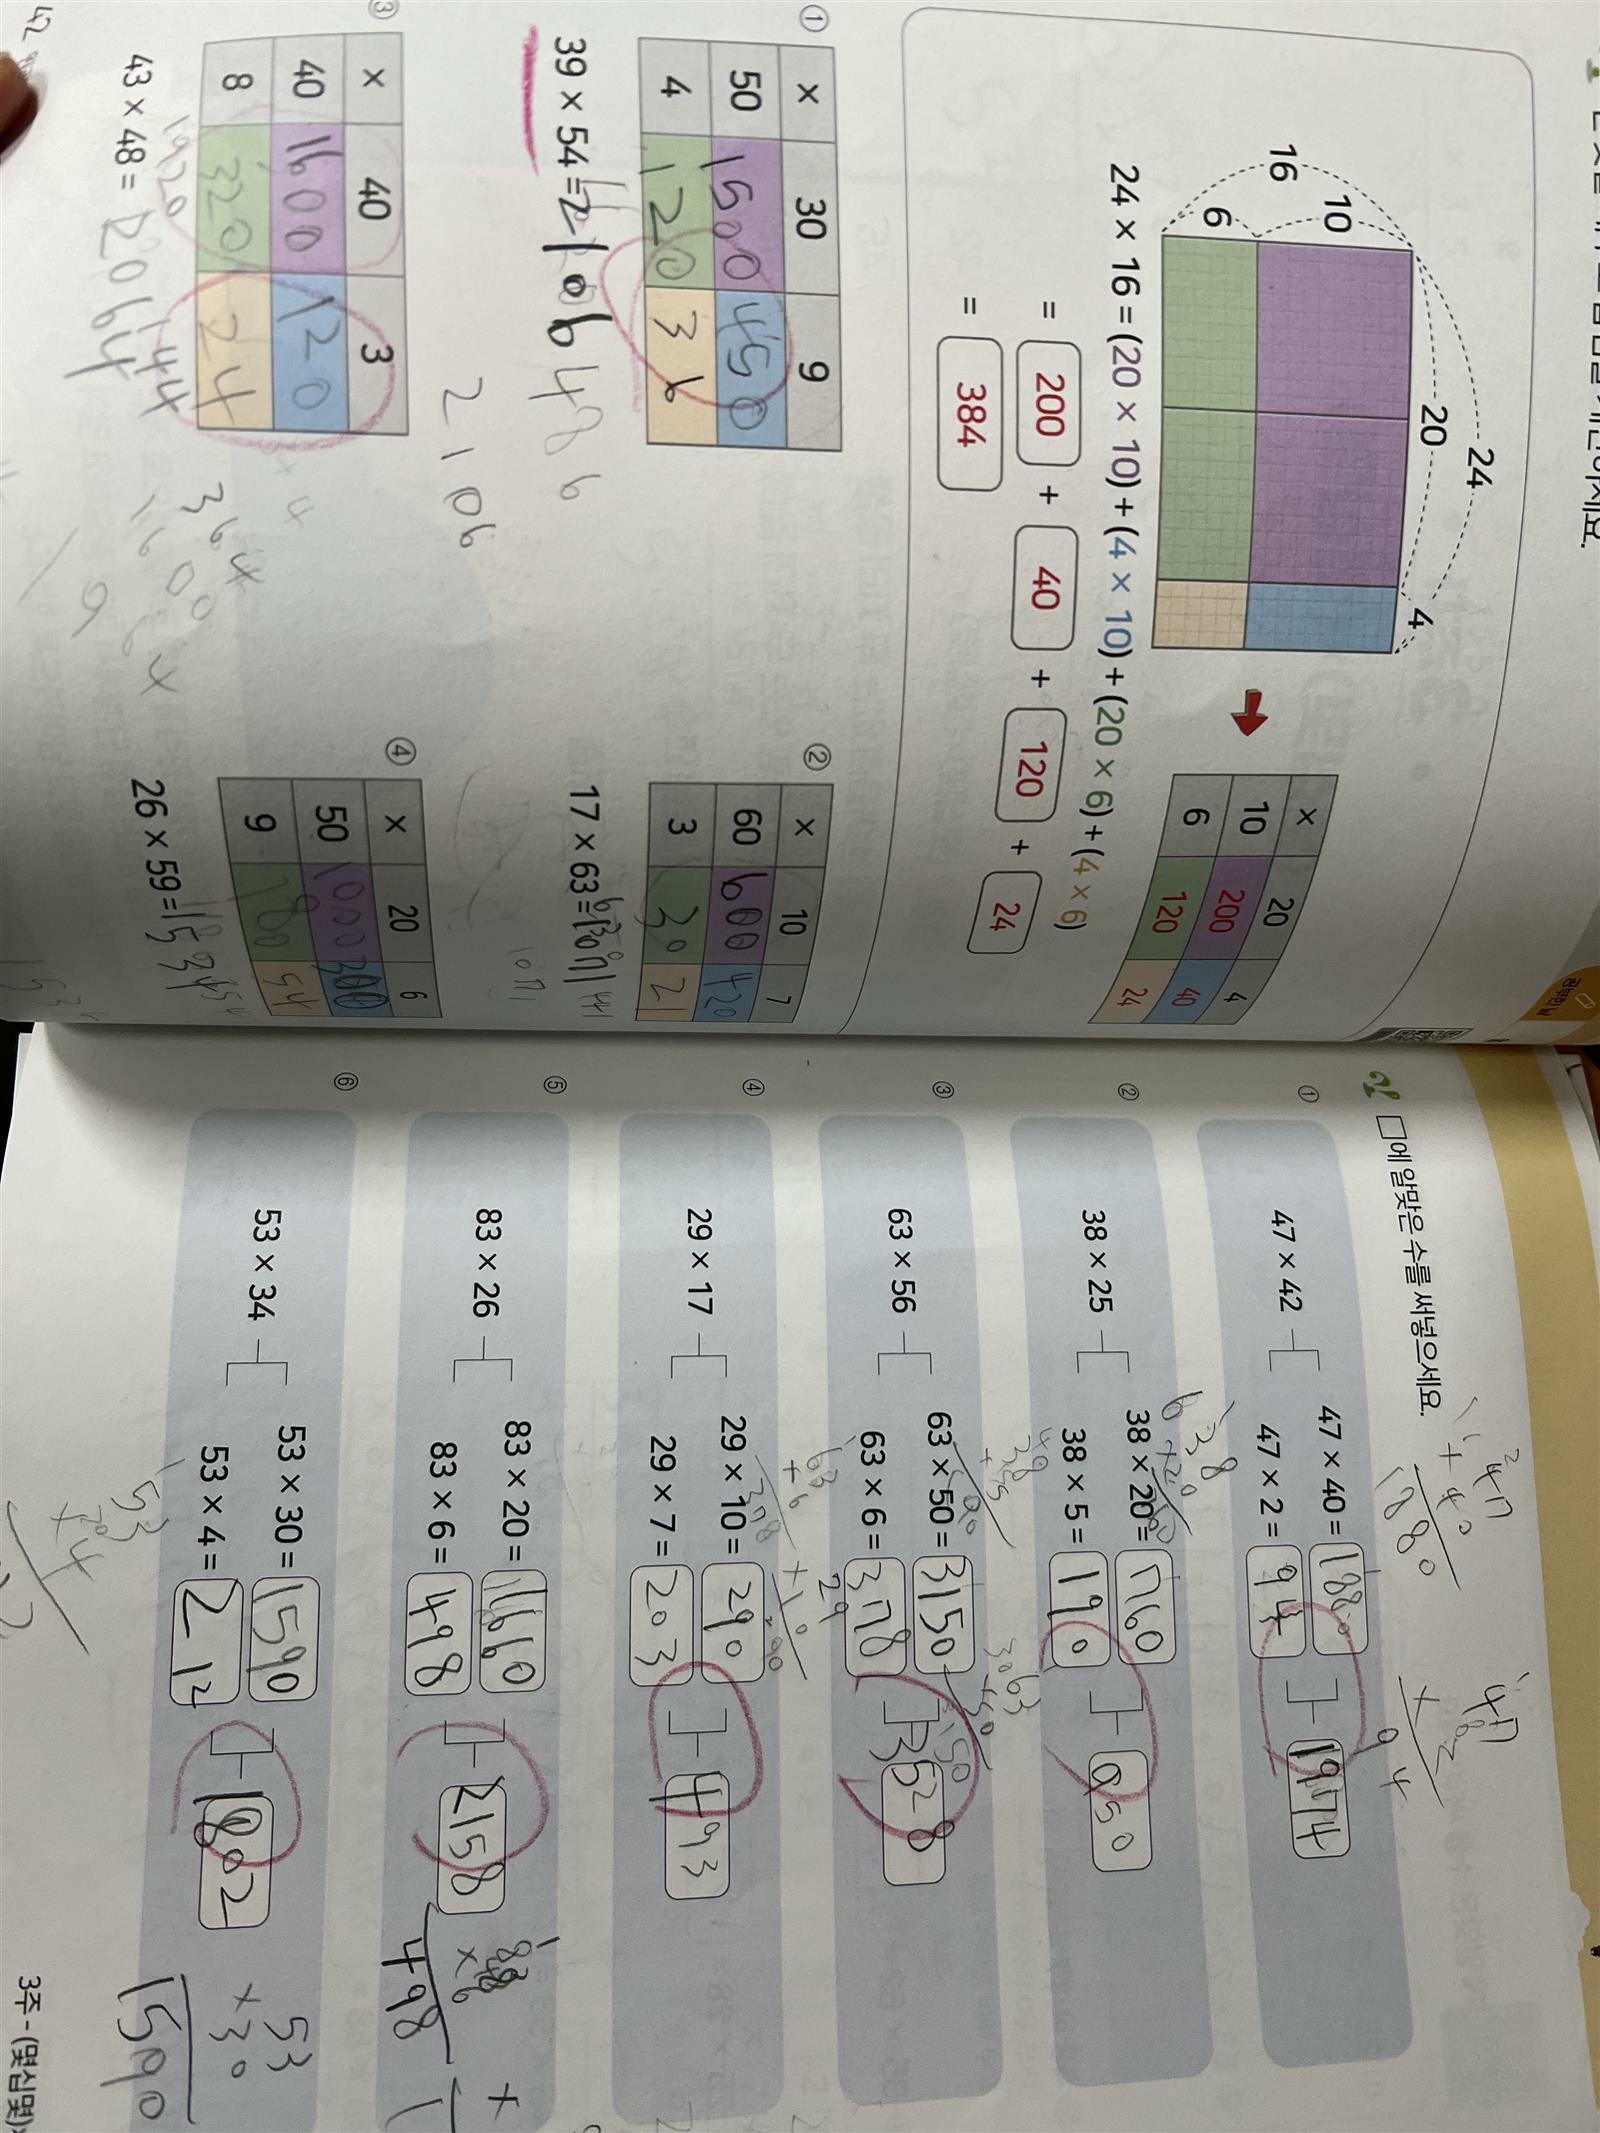 24
20
4
16
10
6
× 20 4
10 200 40
6 120 24
24 × 16 = (20 × 10) + (4 × 10) + (20 × 6) + (4 × 6)
= 200 + 40 + 120 + 24
= 384
①
× 30 9
50 1500 450
4 120 36
39 × 54 = 2106
486
2106
②
× 10 7
60 600 420
3 30 21
17 × 63 = 1071
1071
③
× 40 3
40 1600 120
8 320 24
1920 144
43 × 48 = 2064
④
× 20 6
50 1000 300
9 180 54
26 × 59 = 1534
42
공부한 날
□에 알맞은 수를 써넣으세요.
① 47 × 42
47 × 40 = 1880
47 × 2 = 94
1974
② 38 × 25
38 × 20 = 760
38 × 5 = 190
950
③ 63 × 56
63 × 50 = 3150
63 × 6 = 378
3528
④ 29 × 17
29 × 10 = 290
29 × 7 = 203
493
⑤ 83 × 26
83 × 20 = 1660
83 × 6 = 498
2158
⑥ 53 × 34
53 × 30 = 1590
53 × 4 = 212
1802
47
× 40
1880
47
× 2
94
498
53
× 30
1590
53
× 4
3주 - (몇십몇)